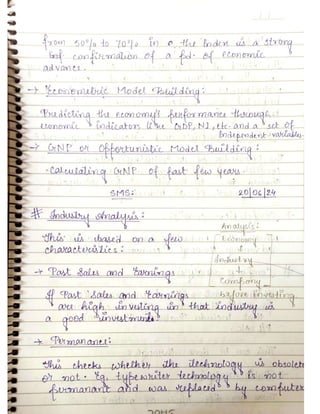 from 50% to 70% in the Index is a strong
confirmation of a pd. of economic
advance.
→ Econometric Model Building:
Predicting the economy's performance through
economic indicators like GDP, NI, etc. and a set of
Independent variables.
→ GNP or Opportunistic Model Building:
Calculating GNP of past few years.
SMS: 20/06/24
# Industry Analysis:
Analysis:
This is based on a few Economy
characteristics: ↓
Industry
↓
→ Past Sales and Earnings Company
before investing
If Past Sales and Earnings
are high investing in that industry is
a good investment.
→ Permanance:
This checks whether the technology is obsolete
or not. Eg. typewriter technology is not
permanant and was replaced by computer